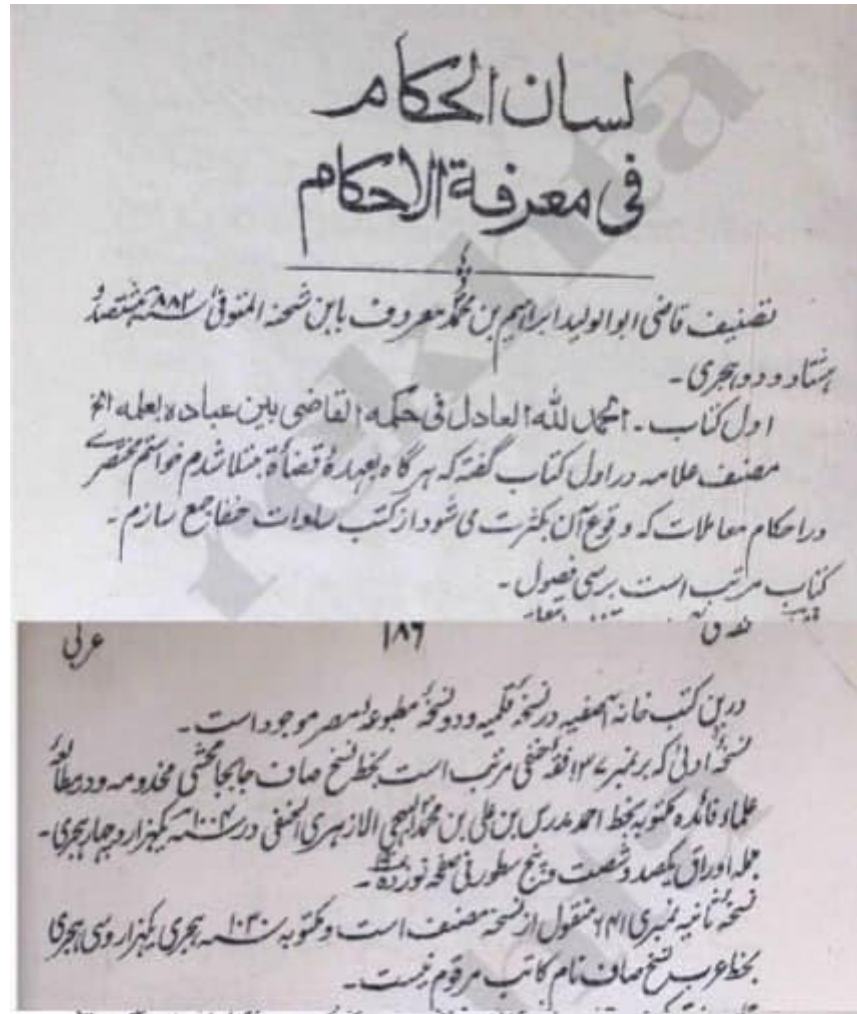 لسان الحکام
فی معرفة الاحکام
تصنیف قاضی ابوالولید ابراہیم بن محمد معروف بابن شحنہ المتوفی ۸۸۲ سنہ ہشتصد و
ہشتاد و دو ہجری ۔
اول کتاب ۔ الحمد لله العادل فی حکمه القاضی بین عباده بعلمه الخ
مصنف علامہ در اول کتاب گفتہ کہ ہر گاہ بعہدۂ قضاة مبتلا شدم خواستم مختصرے
در احکام معاملات کہ وقوع آن بکثرت می شود از کتب سادات حنفا جمع سازم ۔
کتاب مرتب است برسی فصول ۔
عربی ۱۸۶
درین کتب خانہ آصفیہ دو نسخہ قلمیہ و دو نسخۂ مطبوعہ مصر موجود است ۔
نسخۂ اولیٰ کہ بر نمبر ۱۳۷ فقہ حنفی مرتب است بخط نسخ صاف جابجا محشی مخدومہ و در مطالعۂ
علماء فائدہ مکتوبہ بخط احمد مدرس بن علی بن محمد البہجی الازہری الحنفی در ۱۰۰۴ سنہ یکہزار و چہار ہجری ۔
جملہ اوراق یکصد و شصت و پنج سطور فی صفحہ نوزدہ ۔
نسخۂ ثانیہ نمبری ۶۴۱ منقول از نسخہ مصنف است و مکتوبہ ۱۰۳۰ سنہ ہجری یکہزار و سی ہجری
بخط عرب نسخ صاف نام کاتب مرقوم نیست ۔